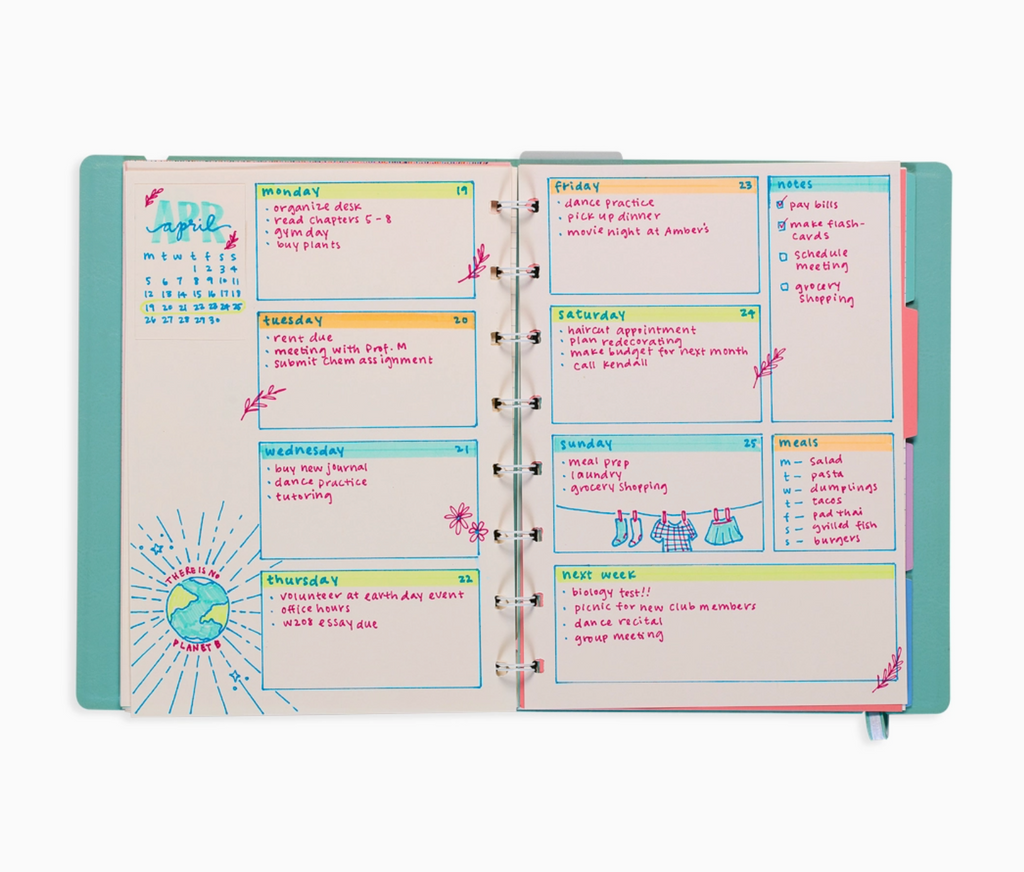 APR
april
m t w t f s s
1 2 3 4
5 6 7 8 9 10 11
12 13 14 15 16 17 18
19 20 21 22 23 24 25
26 27 28 29 30
monday 19
• organize desk
• read chapters 5-8
• gym day
• buy plants
tuesday 20
• rent due
• meeting with Prof. M
• submit chem assignment
wednesday 21
• buy new journal
• dance practice
• tutoring
thursday 22
• volunteer at earth day event
• office hours
• W208 essay due
THERE IS NO
PLANET B
friday 23
• dance practice
• pick up dinner
• movie night at Amber's
saturday 24
• haircut appointment
• plan redecorating
• make budget for next month
• call Kendall
sunday 25
• meal prep
• laundry
• grocery shopping
notes
pay bills
make flash-
cards
schedule
meeting
grocery
shopping
meals
m — salad
t — pasta
w — dumplings
t — tacos
f — pad thai
s — grilled fish
s — burgers
next week
• biology test!!
• picnic for new club members
• dance recital
• group meeting